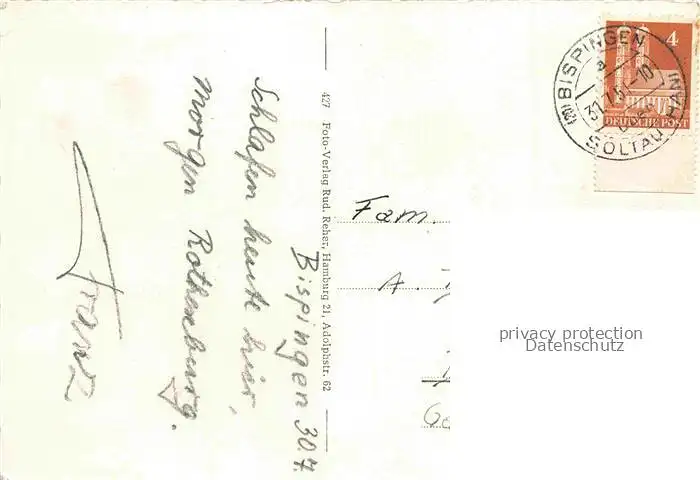 Bispingen 30.7.
Schlafen heute hier,
morgen Rothenburg.
Franz
427 Foto-Verlag Rud. Reher, Hamburg 21, Adolphstr. 62
Fam.
A.
4
DEUTSCHE POST
(20) BISPINGEN
a
31.7.51-10
SOLTAU HAN
privacy protection
Datenschutz